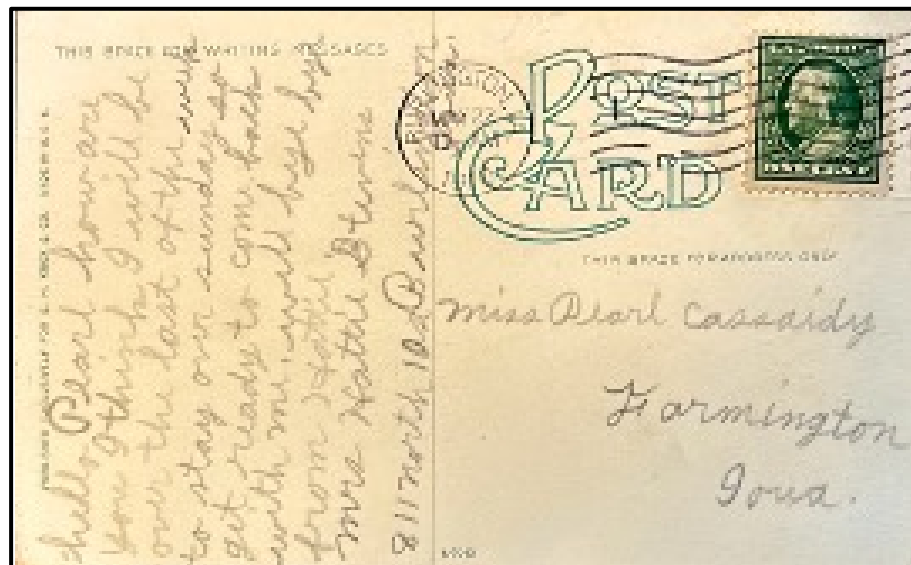 THIS SPACE FOR WRITING MESSAGES
hello Pearl how are
you I think I will be
over the last of the week
to stay over sunday so
get ready to come back
with me, well bye bye
from Hattie
Mrs Hattie Stevens
811 North 10 Burlington
BURLINGTON,
POST
CARD
ONE CENT
THIS SPACE FOR ADDRESS ONLY
Miss Pearl Cassaidy
Farmington
Iowa.